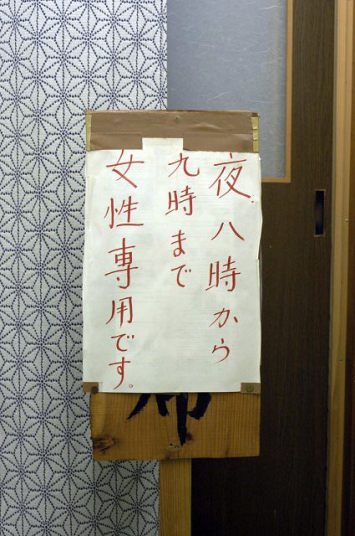 夜八時から
九時まで
女性専用です。